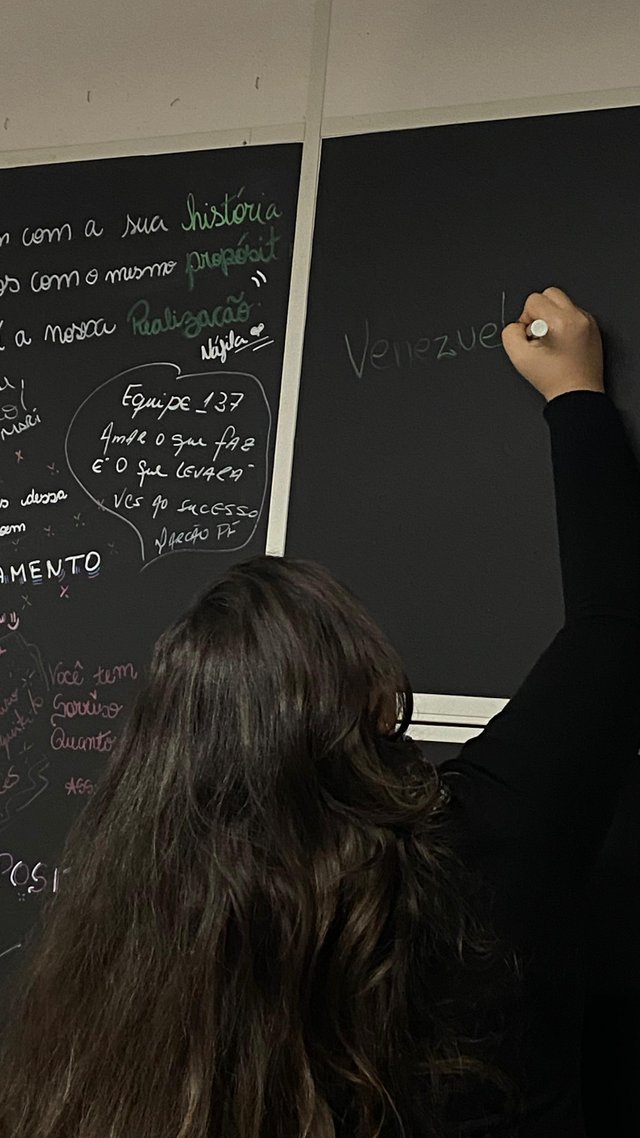 com a sua história
com o mesmo propósit
a nossa Realização
Náfila
Equipe_137
AMAR O que FAZ
É O que LEVARÁ
VCS AO SUCESSO
dessa
AMENTO
Você tem
Sorriso
Quanto
POSI
Venezuel